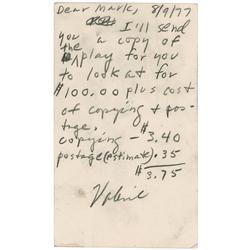 Dear Mark, 8/9/77
I'll send
you a copy of
the play for you
to look at for
$100.00 plus cost
of copying + pos-
tage.
copying - $3.40
postage (estimate) .35
$3.75
Valerie